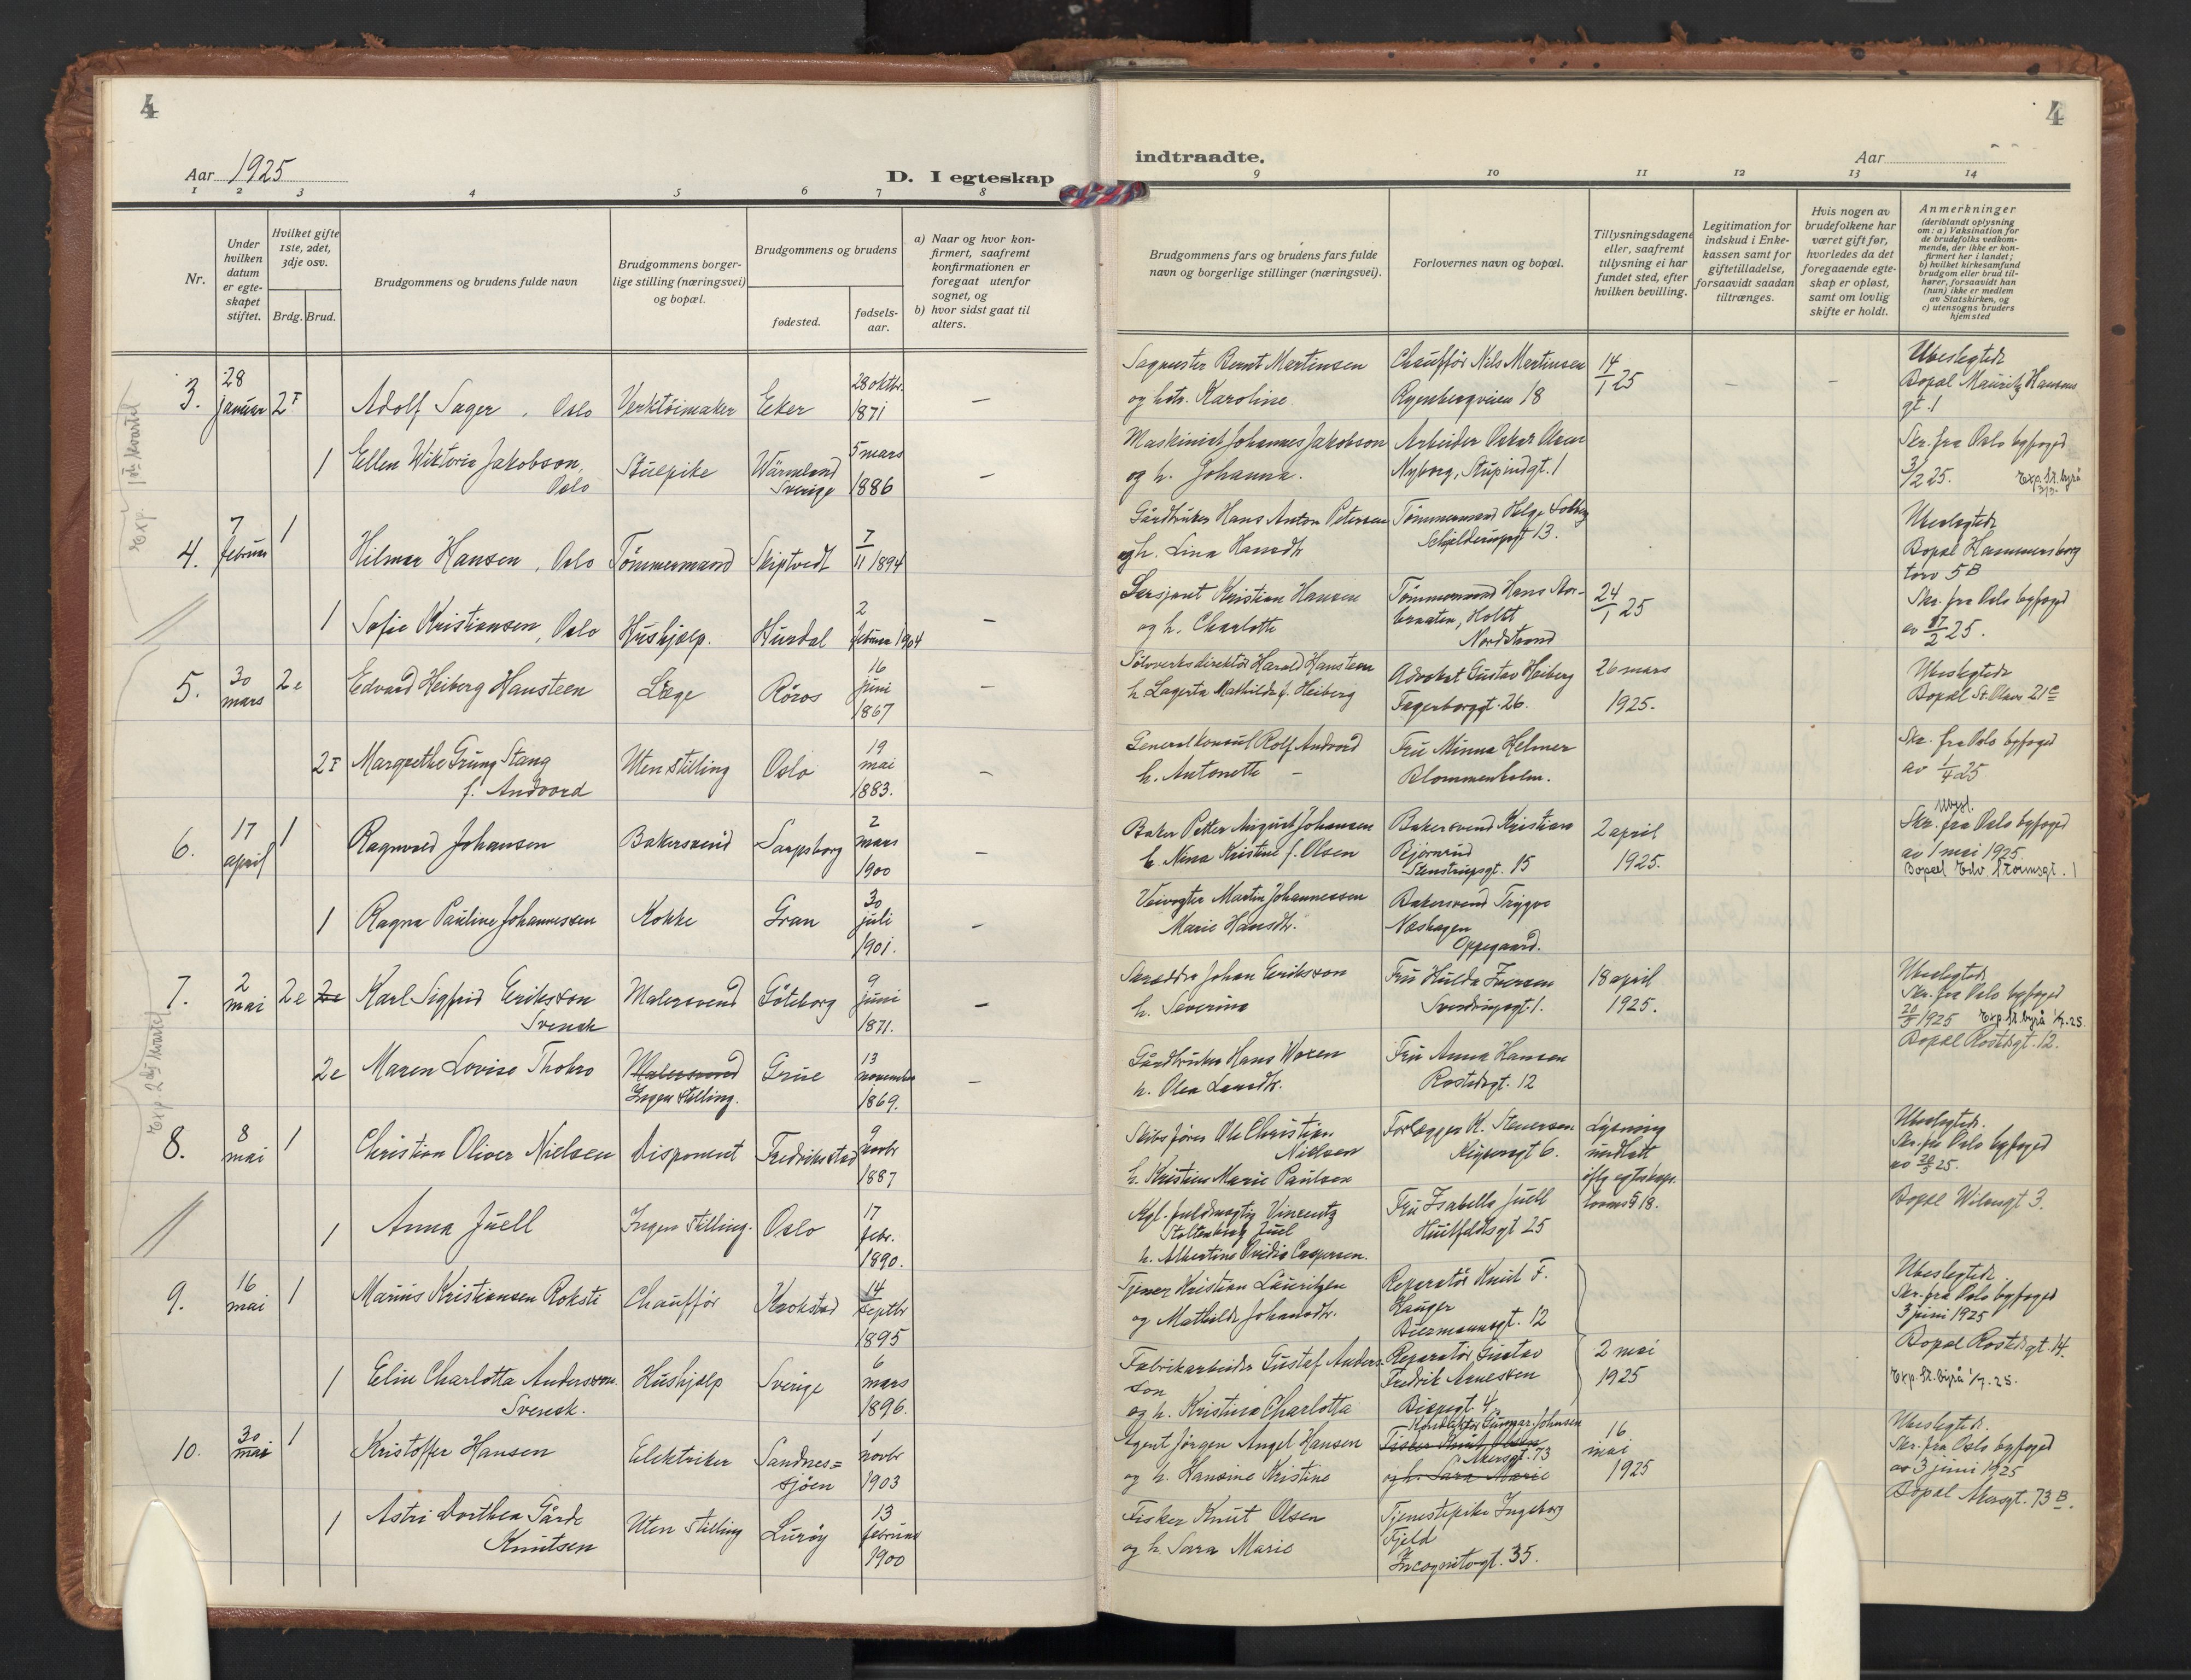 4
Aar 1925
D. I egteskap
1 2 3 4 5 6 7 8
Nr.
Under hvilken datum er egteskapet stiftet.
Hvilket gifte 1ste, 2det, 3dje osv.
Brdg. Brud.
Brudgommens og brudens fulde navn
Brudgommens borgerlige stilling (næringsvei) og bopæl.
Brudgommens og brudens
fødested.
fødsels-aar.
a) Naar og hvor konfirmert, saafremt konfirmationen er foregaat utenfor sognet, og
b) hvor sidst gaat til alters.
3. 28 januar 2 Adolf Sager, Oslo Verktöimaker Eker 28 oktbr. 1871 –
1 Ellen Wiktoria Jakobson, Oslo Stuepike Wärmland Sverige 5 mars 1886 –
4. 7 februar 1 Hilmar Hansen, Oslo Tömmermand Skiptvedt 7/11 1894
1 Sofie Kristiansen, Oslo Hushjælp. Hurdal 2 februar 1904 –
5. 30 mars 2e Edvard Heiberg Hansteen Læge Röros 16 juni 1867 –
2 Margrethe Grung Stang f. Andvord Uten stilling Oslo 19 mai 1883. –
6. 17 april 1 Ragnvald Johansen Bakersvend Sarpsborg 2 mars 1900 –
1 Ragna Pauline Johannessen Kokke Gran 30 juli 1901. –
7. 2 mai 2e 2e Karl Sigfrid Eriksson Svensk Malersvend Göteborg 9 juni 1871. –
2e Maren Lovise Thokro Malersvend Ingen stilling. Grue 13 november 1869. –
8. 8 mai 1 Christian Oliver Nielsen Disponent Fredriksstad 9 novbr 1887
1 Anna Juell Ingen stilling. Oslo 17 febr. 1890.
9. 16 mai 1 Marius Kristiansen Roksti Chaufför Krokstad 14 septbr 1895
1 Elin Charlotta Andersson. Svensk. Hushjælp Sverige 6 mars 1896.
10. 30 mai 1 Kristoffer Hansen Elektriker Sandnes=sjöen 1 novbr 1903
1 Astri Dorthea Gårde Knutsen Uten stilling Luröy 13 februar 1900
Exp. 1ste kvartal
Exp. 2det kvartal
4
indtraadte.
Aar
9 10 11 12 13 14
Brudgommens fars og brudens fars fulde navn og borgerlige stillinger (næringsvei).
Forlovernes navn og bopæl.
Tillysningsdagene eller, saafremt tillysning ei har fundet sted, efter hvilken bevilling.
Legitimation for indskud i Enkekassen samt for giftetilladelse, forsaavidt saadan tiltrænges.
Hvis nogen av brudefolkene har været gift før, hvorledes da det foregaaende egteskap er opløst, samt om lovlig skifte er holdt.
Anmerkninger
(deriblandt oplysning om: a) Vaksination for de brudefolks vedkommende, der ikke er konfirmert her i landet; b) hvilket kirkesamfund brudgom eller brud tilhører, forsaavidt han (hun) ikke er medlem av Statskirken, og c) utensogns bruders hjemsted
Sagmester Bernt Martinsen og hstr. Karoline Chaufför Nils Martinsen Ryenbergveien 18 14/1 25 – – Ubeslegtede Bopæl Mauritz Hansens gt. 1
Maskinist Johannes Jakobson og h. Johanna. Arbeider Oskar Nyborg, Stupindgt. 1 Skr. fra Oslo byfoged 3/2 25. Exp. st. byrå
Gårdbruker Hans Anton Petersen og h. Lina Hansdtr Tömmermand Helge Solberg Schjelderupsgt 13. Ubeslegtede Bopæl Hammersborg torv 5 B
Sersjant Kristian Hansen og h. Charlotte Tömmermand Hans Storbraaten, Holtt Nordstrand 24/1 25 Skr. fra Oslo byfoged av 17/2 25.
Sölvverksdirektör Harald Hansteen h. Lagerta Mathilde f. Heiberg Advokat Gustav Heiberg Fagerborggt. 26. 26 mars 1925. Ubeslegtede Bopæl St. Olavs 21 c
Generalkonsul Rolf Andvord h. Antonette – Fru Minna Helmer Blommenholm. Skr. fra Oslo byfoged av 1/4 25
Baker Petter August Johansen h. Nina Kristine f. Olsen Bakersvend Kristian Björnrud Stenstrupsgt. 15 2 april 1925. Ubesl. Skr. fra Oslo byfoged av 1 mai 1925. Bopæl Edv. Stormsgt. 1
Veivogter Martin Johannessen Marie Hansdtr. Bakersvend Trygve Næshagen Oppegaard.
Skrædder Johan Eriksson h. Severina Fru Hulda Iversen Sverdrupsgt. 1. 18 april 1925. Ubeslegtede Skr. fra Oslo byfoged 20/5 1925 Exp. st. byrå 1/7.25. Bopæl Rostedsgt. 12.
Gårdbruker Hans Woxen h. Olea Larsdtr. Fru Anna Hansen Rostedsgt. 12
Skibsförer Ole Christian Nielsen h. Kristine Marie Paulsen Forlægger K. Stenersen Keysersgt 6. Lysning undlatt iflg egteskaps-lovens § 18. Ubeslegtede. Skr. fra Oslo byfoged av 20/5 25.
Kgl. fuldmægtig Vincentz Stoltenberg Juel h. Albertine Ovidia Caspersen. Fru Isabella Juell Huitfeldtsgt 25 Bopæl Wilsesgt 3.
Tjener Kristian Lauritzen og Mathilde Johansdtr. Reparatör Knut F. Hauger Biermannsgt. 12 Ubeslegtede Skr. fra Oslo byfoged 3 juni 1925
Fabrikarbeider Gustaf Andersson og h. Kristina Charlotta Reparatör Gustav Fredrik Arnessen Bispegt. 4. 2 mai 1925 Bopæl Rostedsgt. 14. Exp. st. byrå 1/7.25.
Agent Jörgen Angel Hansen og h. Hansine Kristine Konduktör Gunnar Johnsen Akersgt. 73 Fisker Knut Olsen og h. Sara Marie 16 mai 1925 Ubeslegtede. Skr. fra Oslo byfoged av 3 juni 1925
Fisker Knut Olsen og h. Sara Marie Tjenestepike Ingeborg Fjeld Incognitogt. 35. Bopæl Akersgt. 73 B.